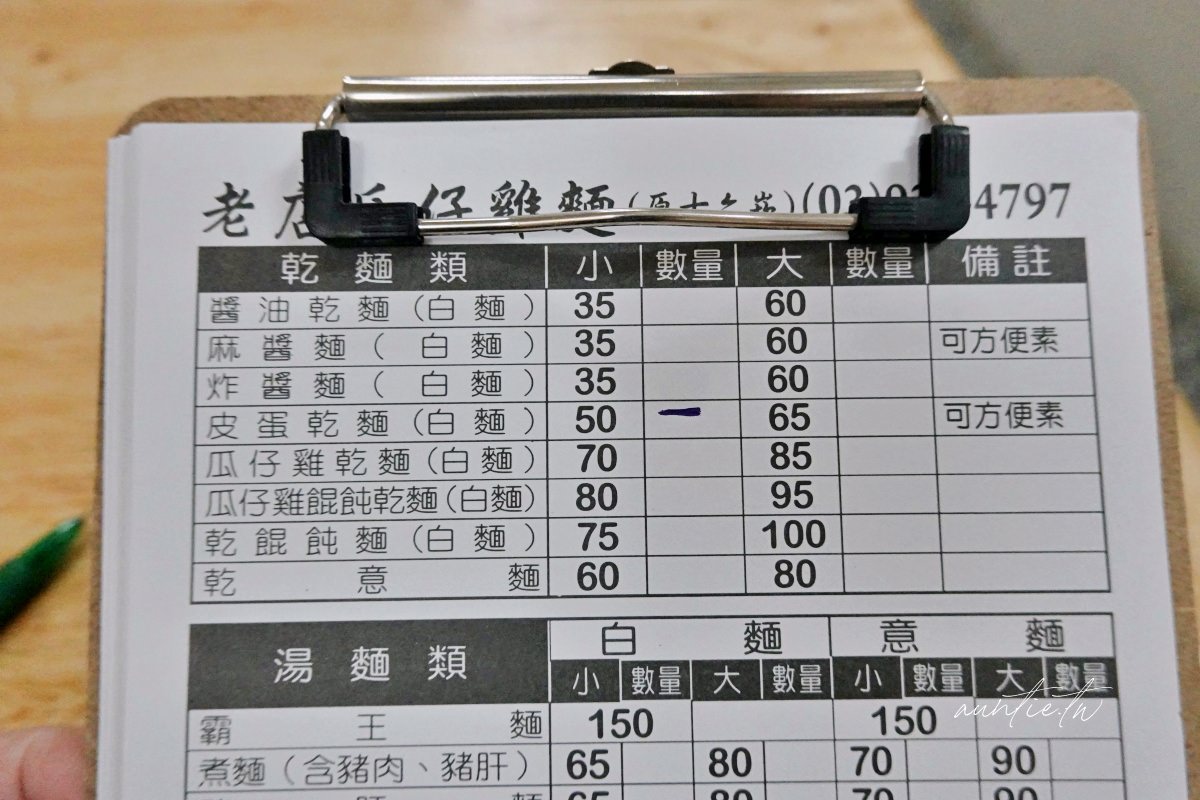 老店 仔雞麵 (03) 4797
乾麵類 小 數量 大 數量 備註
醬油乾麵(白麵) 35 60
麻醬麵(白麵) 35 60 可方便素
炸醬麵(白麵) 35 60
皮蛋乾麵(白麵) 50 一 65 可方便素
瓜仔雞乾麵(白麵) 70 85
瓜仔雞餛飩乾麵(白麵) 80 95
乾餛飩麵(白麵) 75 100
乾意麵 60 80
湯麵類 白麵 意麵
小 數量 大 數量 小 數量 大 數量
霸王麵 150 150
煮麵(含豬肉、豬肝) 65 80 70 90
auntie.tw